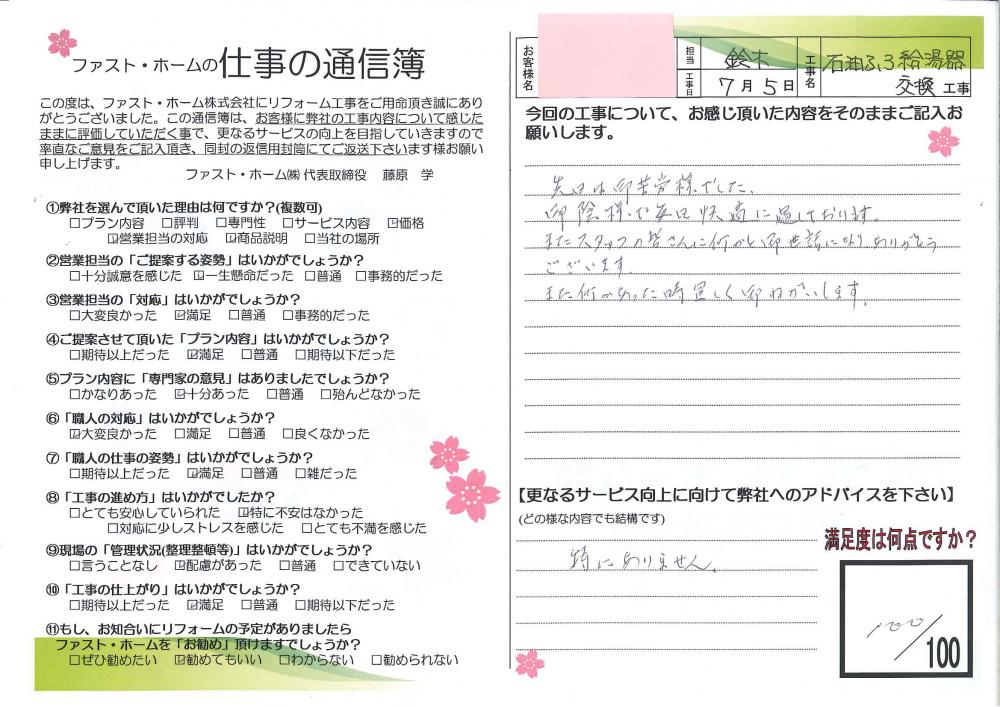 ファスト・ホームの仕事の通信簿
この度は、ファスト・ホーム株式会社にリフォーム工事をご用命頂き誠にあり
がとうございました。この通信簿は、お客様に弊社の工事内容について感じた
ままに評価していただく事で、更なるサービスの向上を目指していきますので
率直なご意見をご記入頂き、同封の返信用封筒にてご返送下さいます様お願い
申し上げます。
ファスト・ホーム㈱ 代表取締役 藤原 学
①弊社を選んで頂いた理由は何ですか？(複数可)
□プラン内容 □評判 □専門性 □サービス内容 ☑価格
☑営業担当の対応 ☑商品説明 □当社の場所
②営業担当の「ご提案する姿勢」はいかがでしょうか？
□十分誠意を感じた ☑一生懸命だった □普通 □事務的だった
③営業担当の「対応」はいかがでしょうか？
□大変良かった ☑満足 □普通 □事務的だった
④ご提案させて頂いた「プラン内容」はいかがでしょうか？
□期待以上だった ☑満足 □普通 □期待以下だった
⑤プラン内容に「専門家の意見」はありましたでしょうか？
□かなりあった ☑十分あった □普通 □殆んどなかった
⑥「職人の対応」はいかがでしょうか？
☑大変良かった □満足 □普通 □良くなかった
⑦「職人の仕事の姿勢」はいかがでしょうか？
□期待以上だった ☑満足 □普通 □雑だった
⑧「工事の進め方」はいかがでしたか？
□とても安心していられた ☑特に不安はなかった
□対応に少しストレスを感じた □とても不満を感じた
⑨現場の「管理状況(整理整頓等)」はいかがでしょうか？
□言うことなし ☑配慮があった □普通 □できていない
⑩「工事の仕上がり」はいかがでしょうか？
□期待以上だった ☑満足 □普通 □期待以下だった
⑪もし、お知合いにリフォームの予定がありましたら
ファスト・ホームを「お勧め」頂けますでしょうか？
□ぜひ勧めたい ☑勧めてもいい □わからない □勧められない
お客様名
担当 鈴木
工事日 7月5日
工事名 石油ふろ給湯器
交換 工事
今回の工事について、お感じ頂いた内容をそのままご記入お
願いします。
先日は御苦労様でした。
御陰様で毎日快適に過しております。
またスタッフの皆さんに何かと御世話になりありがとう
ございます。
また何かあった時宜しく御ねがいします。
【更なるサービス向上に向けて弊社へのアドバイスを下さい】
(どの様な内容でも結構です)
特にありません。
満足度は何点ですか？
100/100